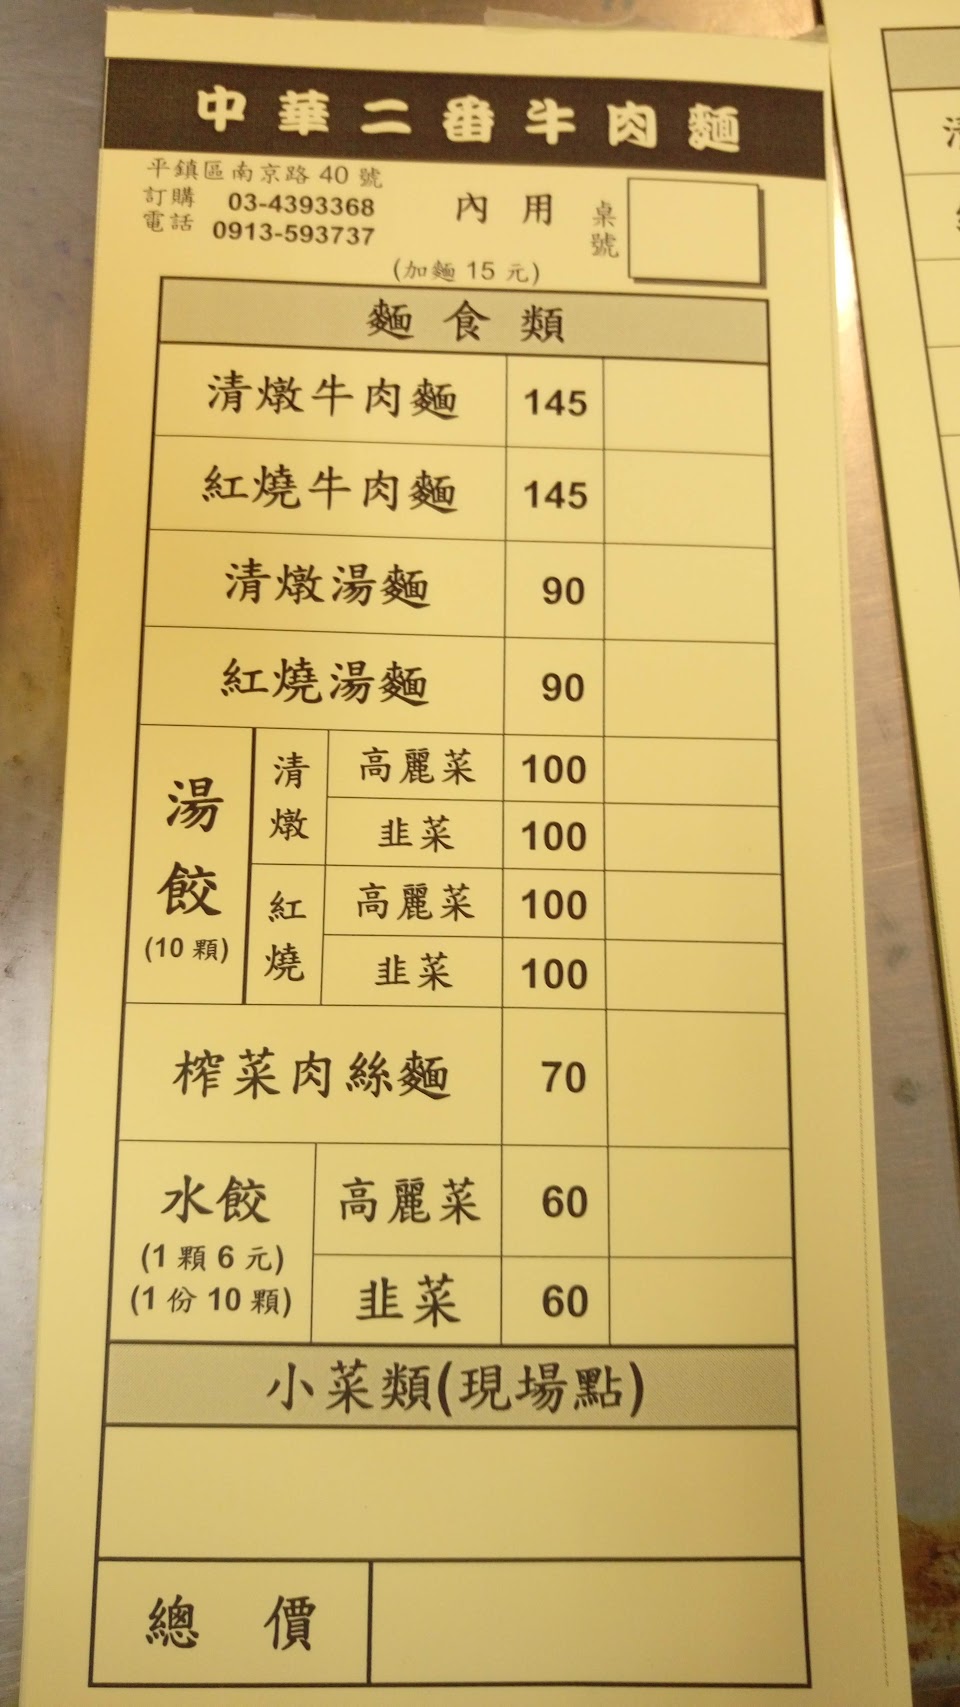 中華二番牛肉麵
平鎮區南京路 40 號
訂購 03-4393368
電話 0913-593737
內用
桌號
(加麵 15 元)
麵食類
清燉牛肉麵 145
紅燒牛肉麵 145
清燉湯麵 90
紅燒湯麵 90
湯餃
(10 顆)
清燉
高麗菜 100
韭菜 100
紅燒
高麗菜 100
韭菜 100
榨菜肉絲麵 70
水餃
(1 顆 6 元)
(1 份 10 顆)
高麗菜 60
韭菜 60
小菜類(現場點)
總價